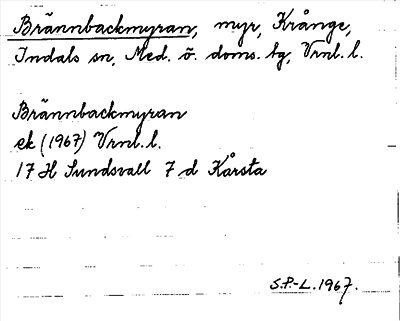 Brännbackmyran, myr, Krånge,
Indals sn, Med. ö. doms. tg, Vrnl. l.
Brännbackmyran
ek (1967) Vrnl. l.
17 H Sundsvall 7 d Kårsta
S.P.-L. 1967.